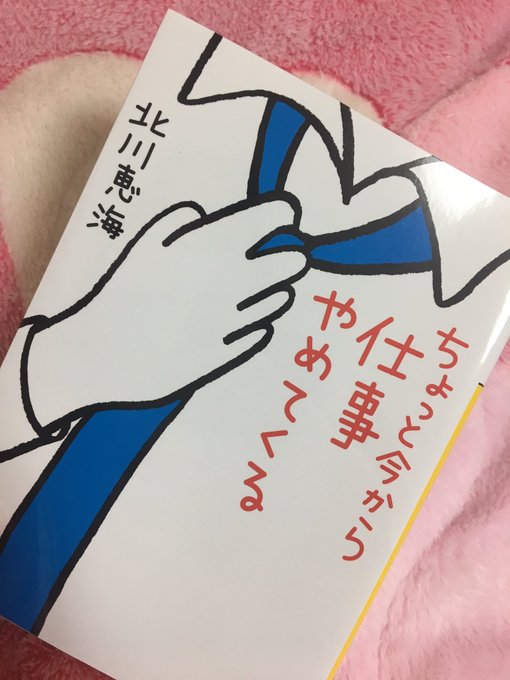 ちょっと今から
仕事
やめてくる
北川恵海